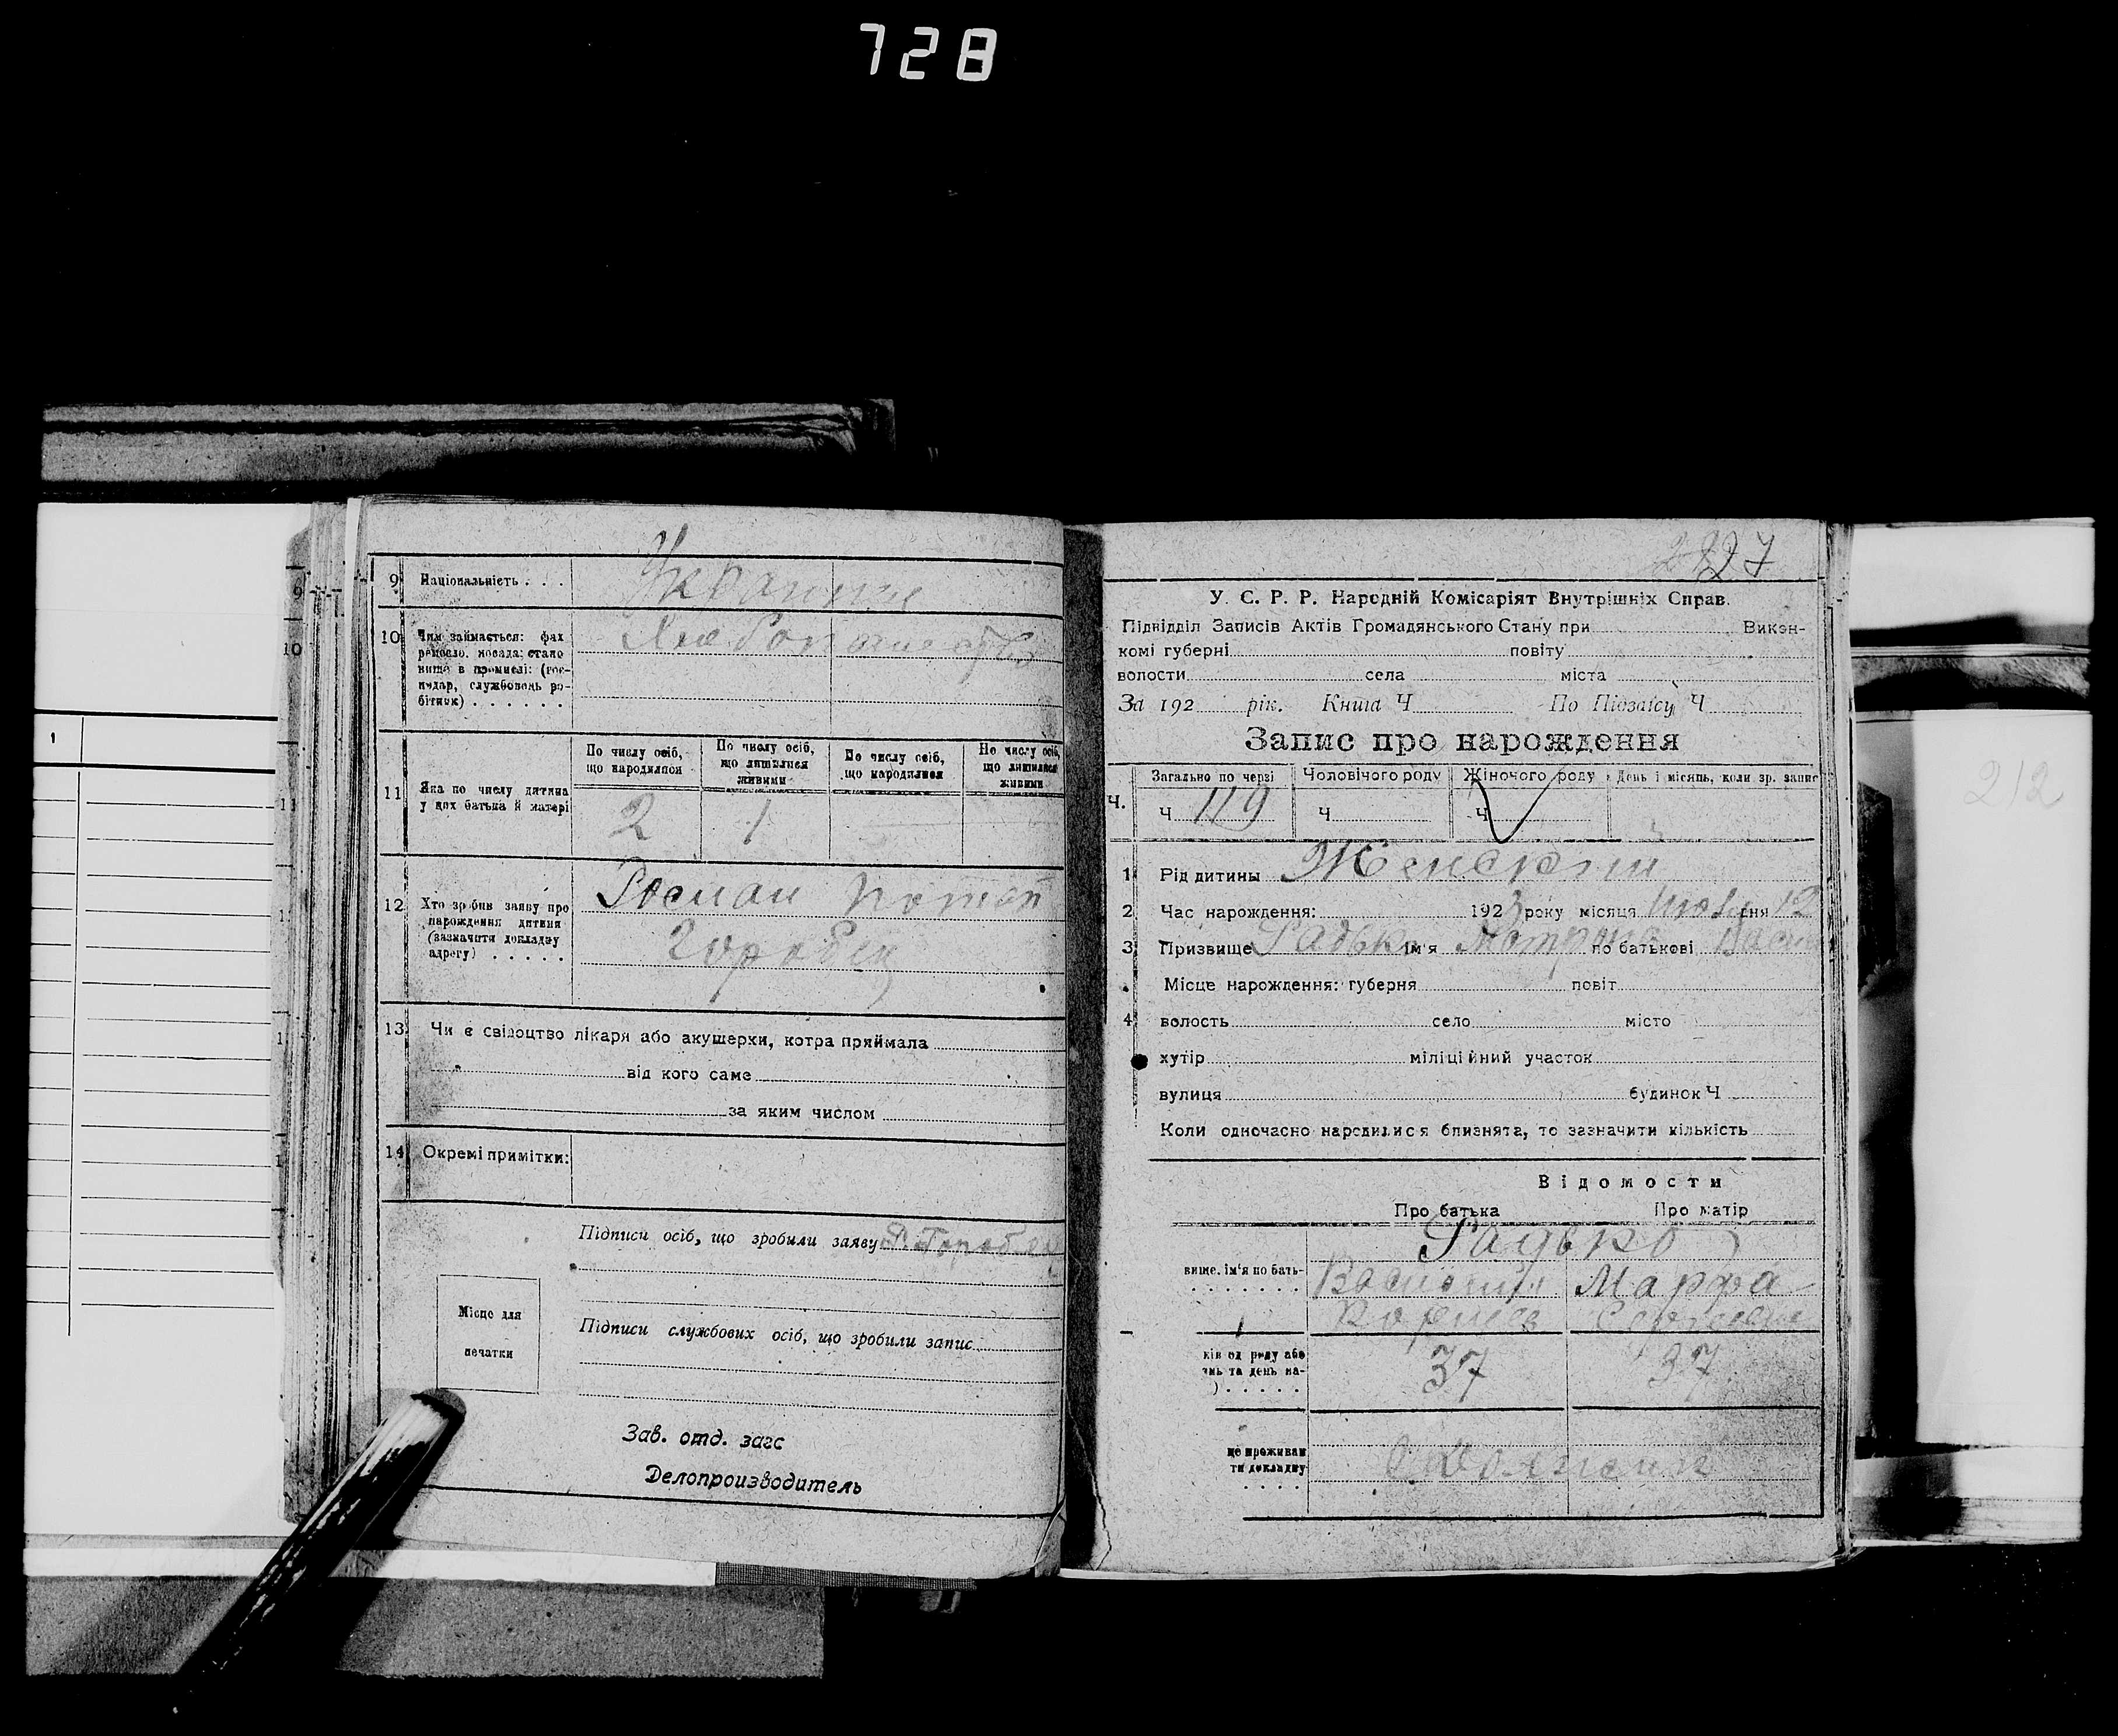 728
9 Національність . . .
10 Чим займається: фах
ремесло, посада: стано
вище в промислі: (гос-
подар, службовець ро-
бітник) . . . . . .
Хлеборопашество
11 Яка по числу дитина
у цих батька й матері
По числу осіб, що народилися
По числу осіб, що лишилися живими
По числу осіб, що народилися
По числу осіб, що лишилися живими
2 1
12 Хто зробив заяву про
народження дитини
(зазначити докладну
адресу) . . . . .
Роман
Горобец
13 Чи є свідоцтво лікаря або акушерки, котра прiймала
від кого саме
за яким числом
14 Окремі примітки:
Підписи осіб, що зробили заяву Р. Горобец
Місце для
печатки
Підписи службових осіб, що зробили запис
Зав. отд. загс
Делопроизводитель
9
10
11
1
227
У. С. Р. Р. Народній Комісаріят Внутрішніх Справ.
Підвідділ Записів Актів Громадянського Стану при Викон-
комі губерні повіту
волости села міста
За 192 рік. Книга Ч По Підзаісу Ч
Запис про нарождення
Ч. Загально по черзі Чоловічого роду Жіночого роду День і місяць, коли зр. запис
Ч 119 Ч Ч
1 Рід дитини Женский
2 Час нарождення: 1923 року місяця Июль дня 12
3 Призвище Радько ім'я Мотрона по батькові Васил
Місце нарождення: губерня повіт
4 волость село місто
хутір міліційний участок
вулиця будинок Ч
Коли одночасно народилися близнята, то зазначити кількість
Відомости
Про батька Про матір
Радько
вище, ім'я по бать- Василий Марфа
Корнеев Сергеевна
ків од роду або
знь та день на-
) . . . . .
37 37
ще проживан
ти докладну
. . . .
212